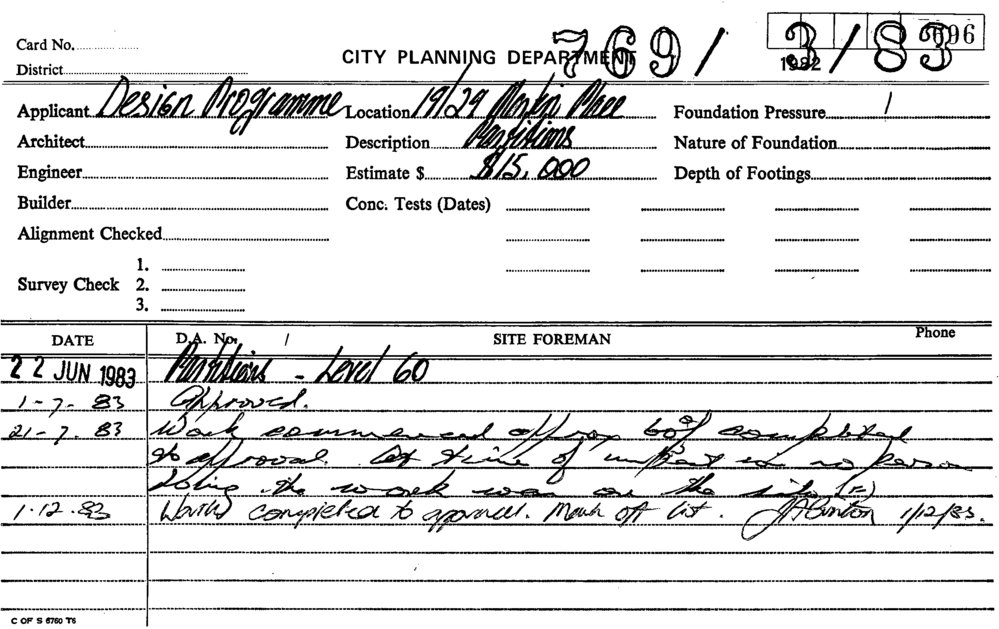 769/ 3/83
Card No. CITY PLANNING DEPARTMENT 1982 696
District
Applicant Design Programme Location 19/29 Martin Place Foundation Pressure /
Architect Description Partitions Nature of Foundation
Engineer Estimate $ $15,000 Depth of Footings
Builder Conc. Tests (Dates)
Alignment Checked
1.
Survey Check 2.
3.
DATE D.A. No. / SITE FOREMAN Phone
22 JUN 1983 Partitions - Level 60
1-7-83 Approved.
21-7.83 Work commenced approx 60% completed
to approval. At time of no person
doing the work was on the site
1.12.83 Works completed to approval. Mark off list. 1/12/83.
C OF S 6760 T6